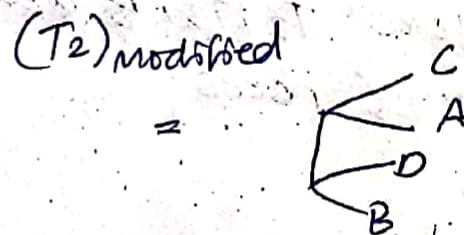 (T2)modified
=
C
A
D
B